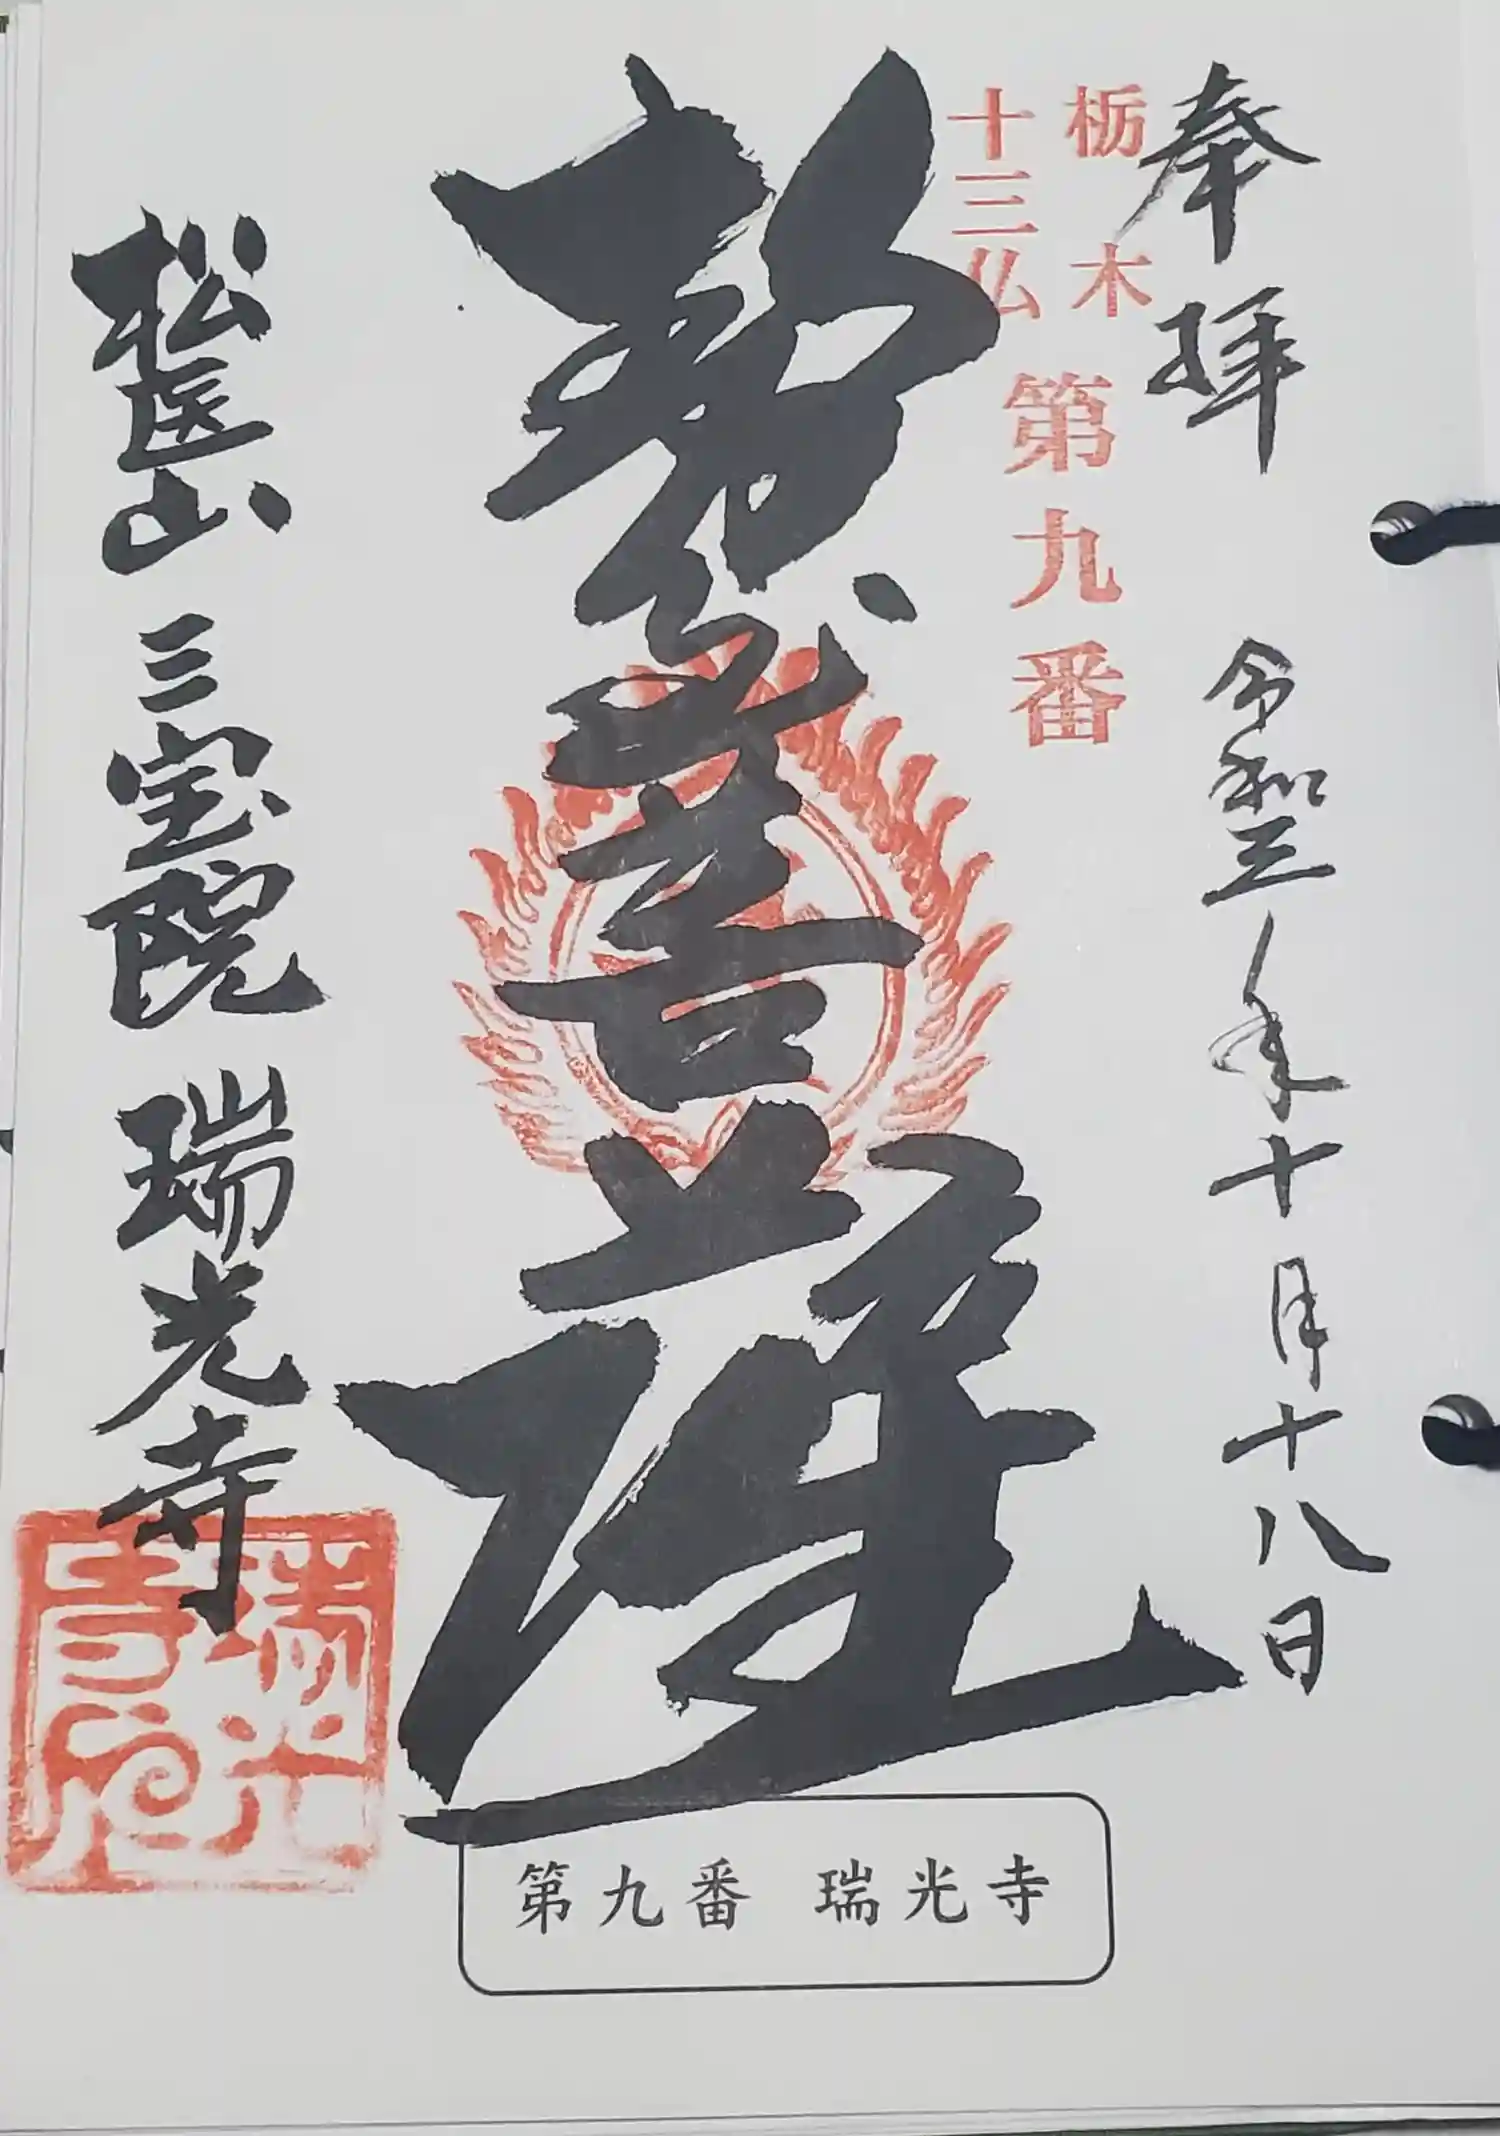 奉拝
令和三年十月十八日
栃木
十三仏
第九番
勢至菩薩
松医山 三宝院 瑞光寺
第九番 瑞光寺